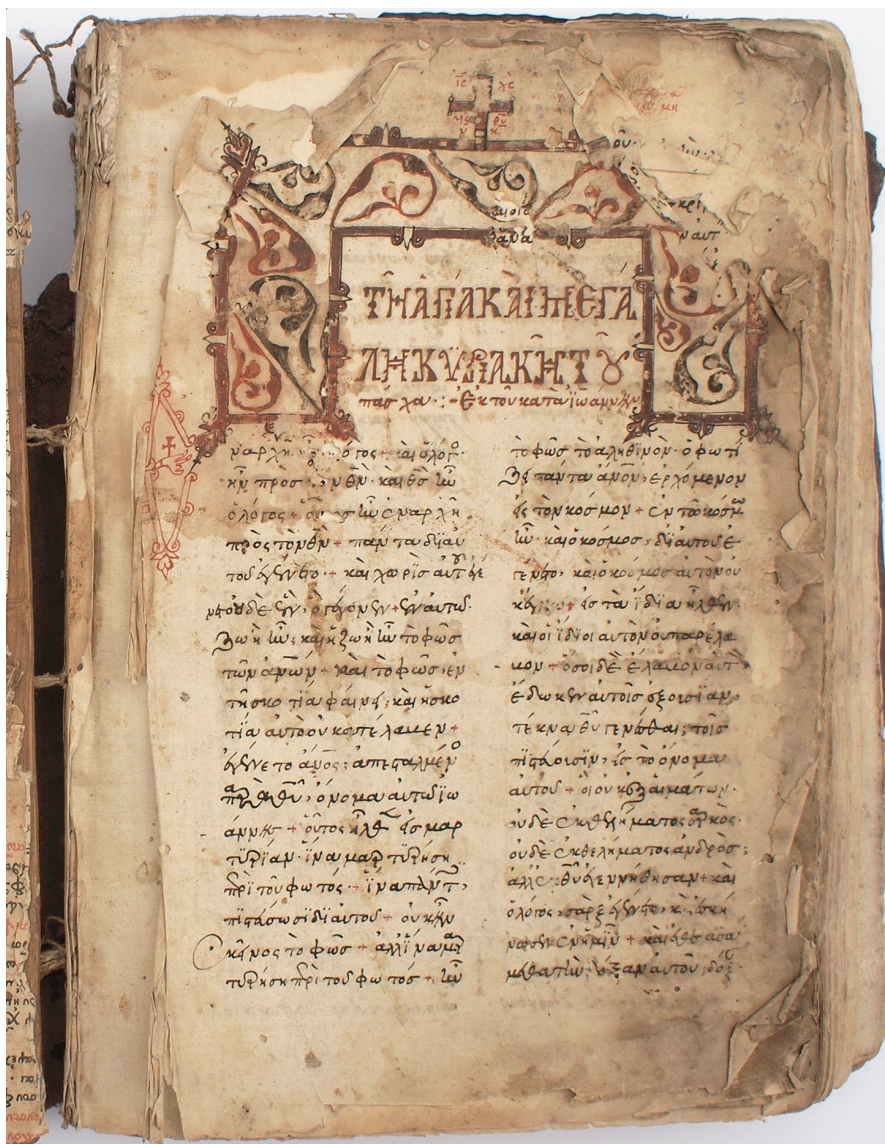 ΙC ΧC
ΤΗ ΑΓΙΑ ΚΑΙ ΜΕΓΑ
ΛΗ ΚΥΡΙΑΚΗ ΤΟΥ
πασχα · Ἐκ τοῦ κατὰ ϊωάννην
ναρχῆ λόγος + καὶ ὁ λόγο
ἦν πρὸς θν· καὶ θς ἦν
ὁ λόγος + οὗτος ἦν ἐν ἀρχῆ
πρὸς τὸν θν + πάντα δι αυ
τοῦ ἐγένετο + καὶ χωρὶς αὐτοῦ ἐγέ
νετο οὐδὲ ἓν, ὃ γέγονεν + ἐν αὐτῶ
ζωὴ ἦν, καὶ ἡ ζωὴ ἦν τὸ φῶς
τῶν ἀνων + καὶ τὸ φῶς ἐν
τῆ σκοτία φαίνει, καὶ ἡ σκο
τία αὐτὸ οὐ κατέλαβεν +
ἐγένετο ἀνος, ἀπεσταλμένο
παρὰ θυ, ὄνομα αὐτῶ ϊω
άννης + οὗτος ἦλθεν εἰς μαρ
τυρίαν· ἵνα μαρτυρήση
περὶ τοῦ φωτός + ἵνα πάντες
πιστεύσωσι δι αὐτοῦ + οὐκ ἦν
ἐκεῖνος τὸ φῶς + ἀλλ ἵνα μαρ
τυρήση περὶ τοῦ φωτός + ἦν
τὸ φῶς τὸ ἀληθινόν· ὃ φωτί
ζει πάντα ἀνον, ἐρχόμενον
εἰς τὸν κόσμον + ἐν τῶ κόσμω
ἦν· καὶ ὁ κόσμος, δι αὐτοῦ ἐ
γένετο, καὶ ὁ κόσμος αὐτὸν οὐ
κ + εἰς τὰ ϊδια ἦλθεν·
καὶ οἱ ϊδιοι αὐτὸν οὐ παρέλα
βον + ὅσοι δὲ ἔλαβον αὐτὸν
ἔδωκεν αὐτοῖς ἐξουσίαν,
τέκνα θυ γενέσθαι, τοῖς
πιστεύουσιν, εἰς τὸ ὄνομα
αὐτοῦ + οἳ οὐκ ἐξ αἱμάτων·
οὐδὲ ἐκ θελήματος σαρκός·
οὐδὲ ἐκ θελήματος ἀνδρὸς,
ἀλλ ἐκ θυ ἐγεννήθησαν + καὶ
ὁ λόγος, σὰρξ ἐγένετο, κ ἐσκή
νωσεν ἐν ἡμῖν + καὶ ἐθεασά
μεθα τὴν δόξαν αὐτοῦ, δόξαν